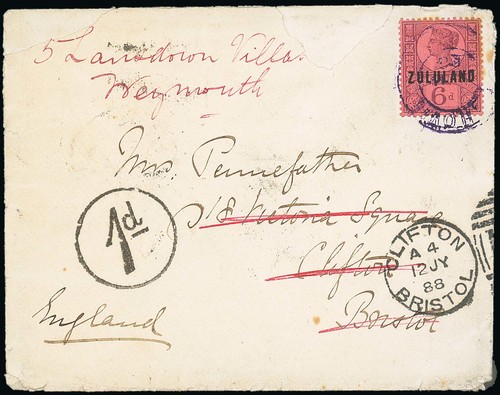 5 Lansdown Villas
Weymouth
ZULULAND
6d
Mrs Pennefather
18 Victoria Square
Clifton
Bristol
1d
CLIFTON
A 4
12 JY
88
BRISTOL
England